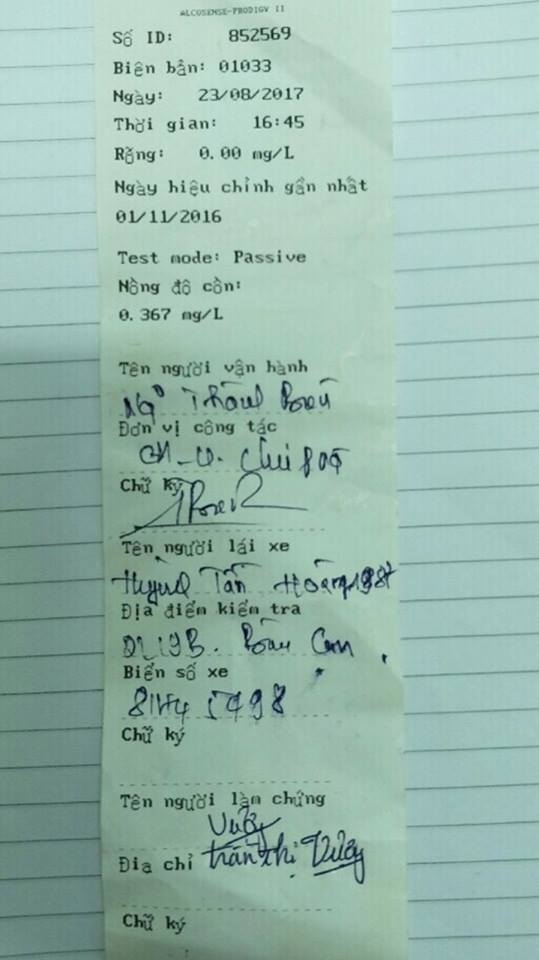 ALCOSENSE-PRODIGY II
Số ID: 852569
Biên bản: 01033
Ngày: 23/08/2017
Thời gian: 16:45
Rỗng: 0.00 mg/L
Ngày hiệu chỉnh gần nhất
01/11/2016
Test mode: Passive
Nồng độ cồn:
0.367 mg/L
Tên người vận hành
Ngô
Đơn vị công tác
Chữ ký
Tên người lái xe
Huỳnh Tấn Hoàng 1987
Địa điểm kiểm tra
Biển số xe
81H4 5498
Chữ ký
Tên người làm chứng
Địa chỉ Trần Thị
Chữ ký